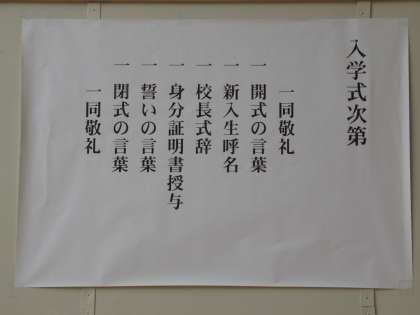 入学式次第
一同敬礼
一 開式の言葉
一 新入生呼名
一 校長式辞
一 身分証明書授与
一 誓いの言葉
一 閉式の言葉
一同敬礼